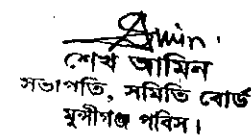 Amin
শেখ আমিন
সভাপতি, সমিতি বোর্ড
মুন্সীগঞ্জ পবিস।